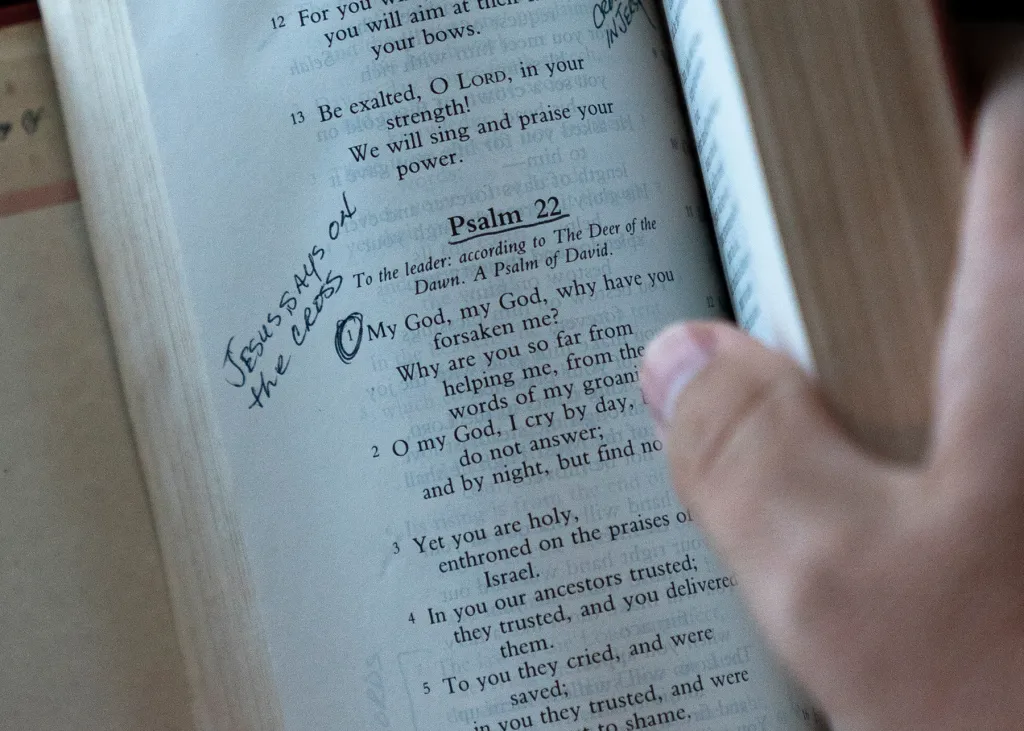 12 For you
you will aim at their
your bows.
13 Be exalted, O LORD, in your
strength!
We will sing and praise your
power.
JESUS SAYS ON
the CROSS
Psalm 22
To the leader: according to The Deer of the
Dawn. A Psalm of David.
1 My God, my God, why have you
forsaken me?
Why are you so far from
helping me, from the
words of my groani
2 O my God, I cry by day,
do not answer;
and by night, but find no
3 Yet you are holy,
enthroned on the praises of
Israel.
4 In you our ancestors trusted;
they trusted, and you delivered
them.
5 To you they cried, and were
saved;
in you they trusted, and were
to shame.